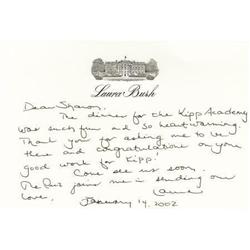 Laura Bush
Dear Sharon,
The dinner for the Kipp Academy
was such fun and so heartwarming.
Thank you for asking me to be
there and congratulations on your
good work for Kipp!
Come see us soon.
The Pres joins me in sending our
love,
Laura
January 14, 2002